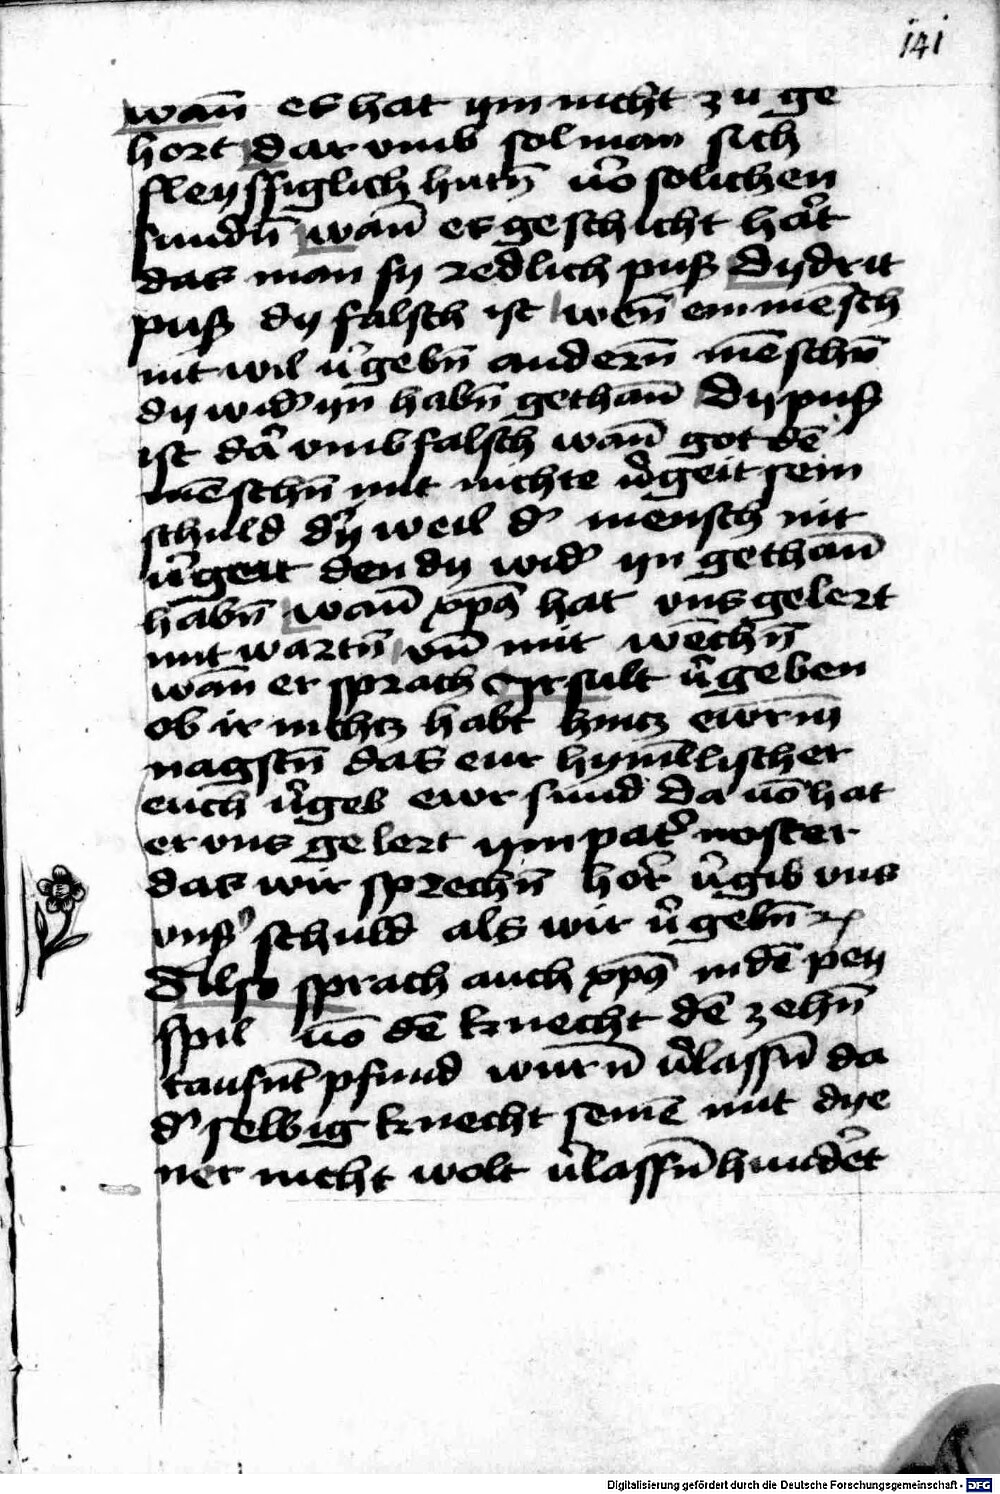 141
wan̄ es hat ym nicht zu ge
hort Dar vmb sol man sich
fleyssiglich hutn̄ vo̅ solichen
sundn̄ wan̄ es geschicht hˀt
das man sy redlich puß Dy drit
puß dy falsch ist wen̄ ein me̅sch
nit wil vˀgebn̄ andern̄ me̅schn̄
dy widˀ yn habn̄ gethan̄ Dy puß
ist daˀ vmb falsch wan̄ got de̅
me̅schn̄ mit nichte vˀgeit sein
schuld dy weil dˀ mensch nit
vˀgeit den dy widˀ yn gethan̄
habn̄ wan̄ xp̅s hat vns gelert
mit wartn̄ vn̄ mit we̅chn̄
wan̄ er sprach Ir sult vˀgeben
ob ir nichtz habt hintz ewrm̅
nagstn̄ das eur hym̅llischer
euch vˀgeb ewr sund Da vo̅ hat
er vns gelert ym patˀ noster
das wir sprechn̄ herˀ vˀgib vns
vnßˀ schuld als wir vˀgebn̄ ꝛc
Also sprach auch xp̅s in de̅ pey
spil vo̅ de̅ knecht de̅ zehn̄
tausnˀt pfund wurn̄ vˀlassn̄ da
dˀ selbig knecht seine̅ mit dye
ner nicht wolt vˀlassn̄ hundˀt
Digitalisierung gefördert durch die Deutsche Forschungsgemeinschaft - DFG